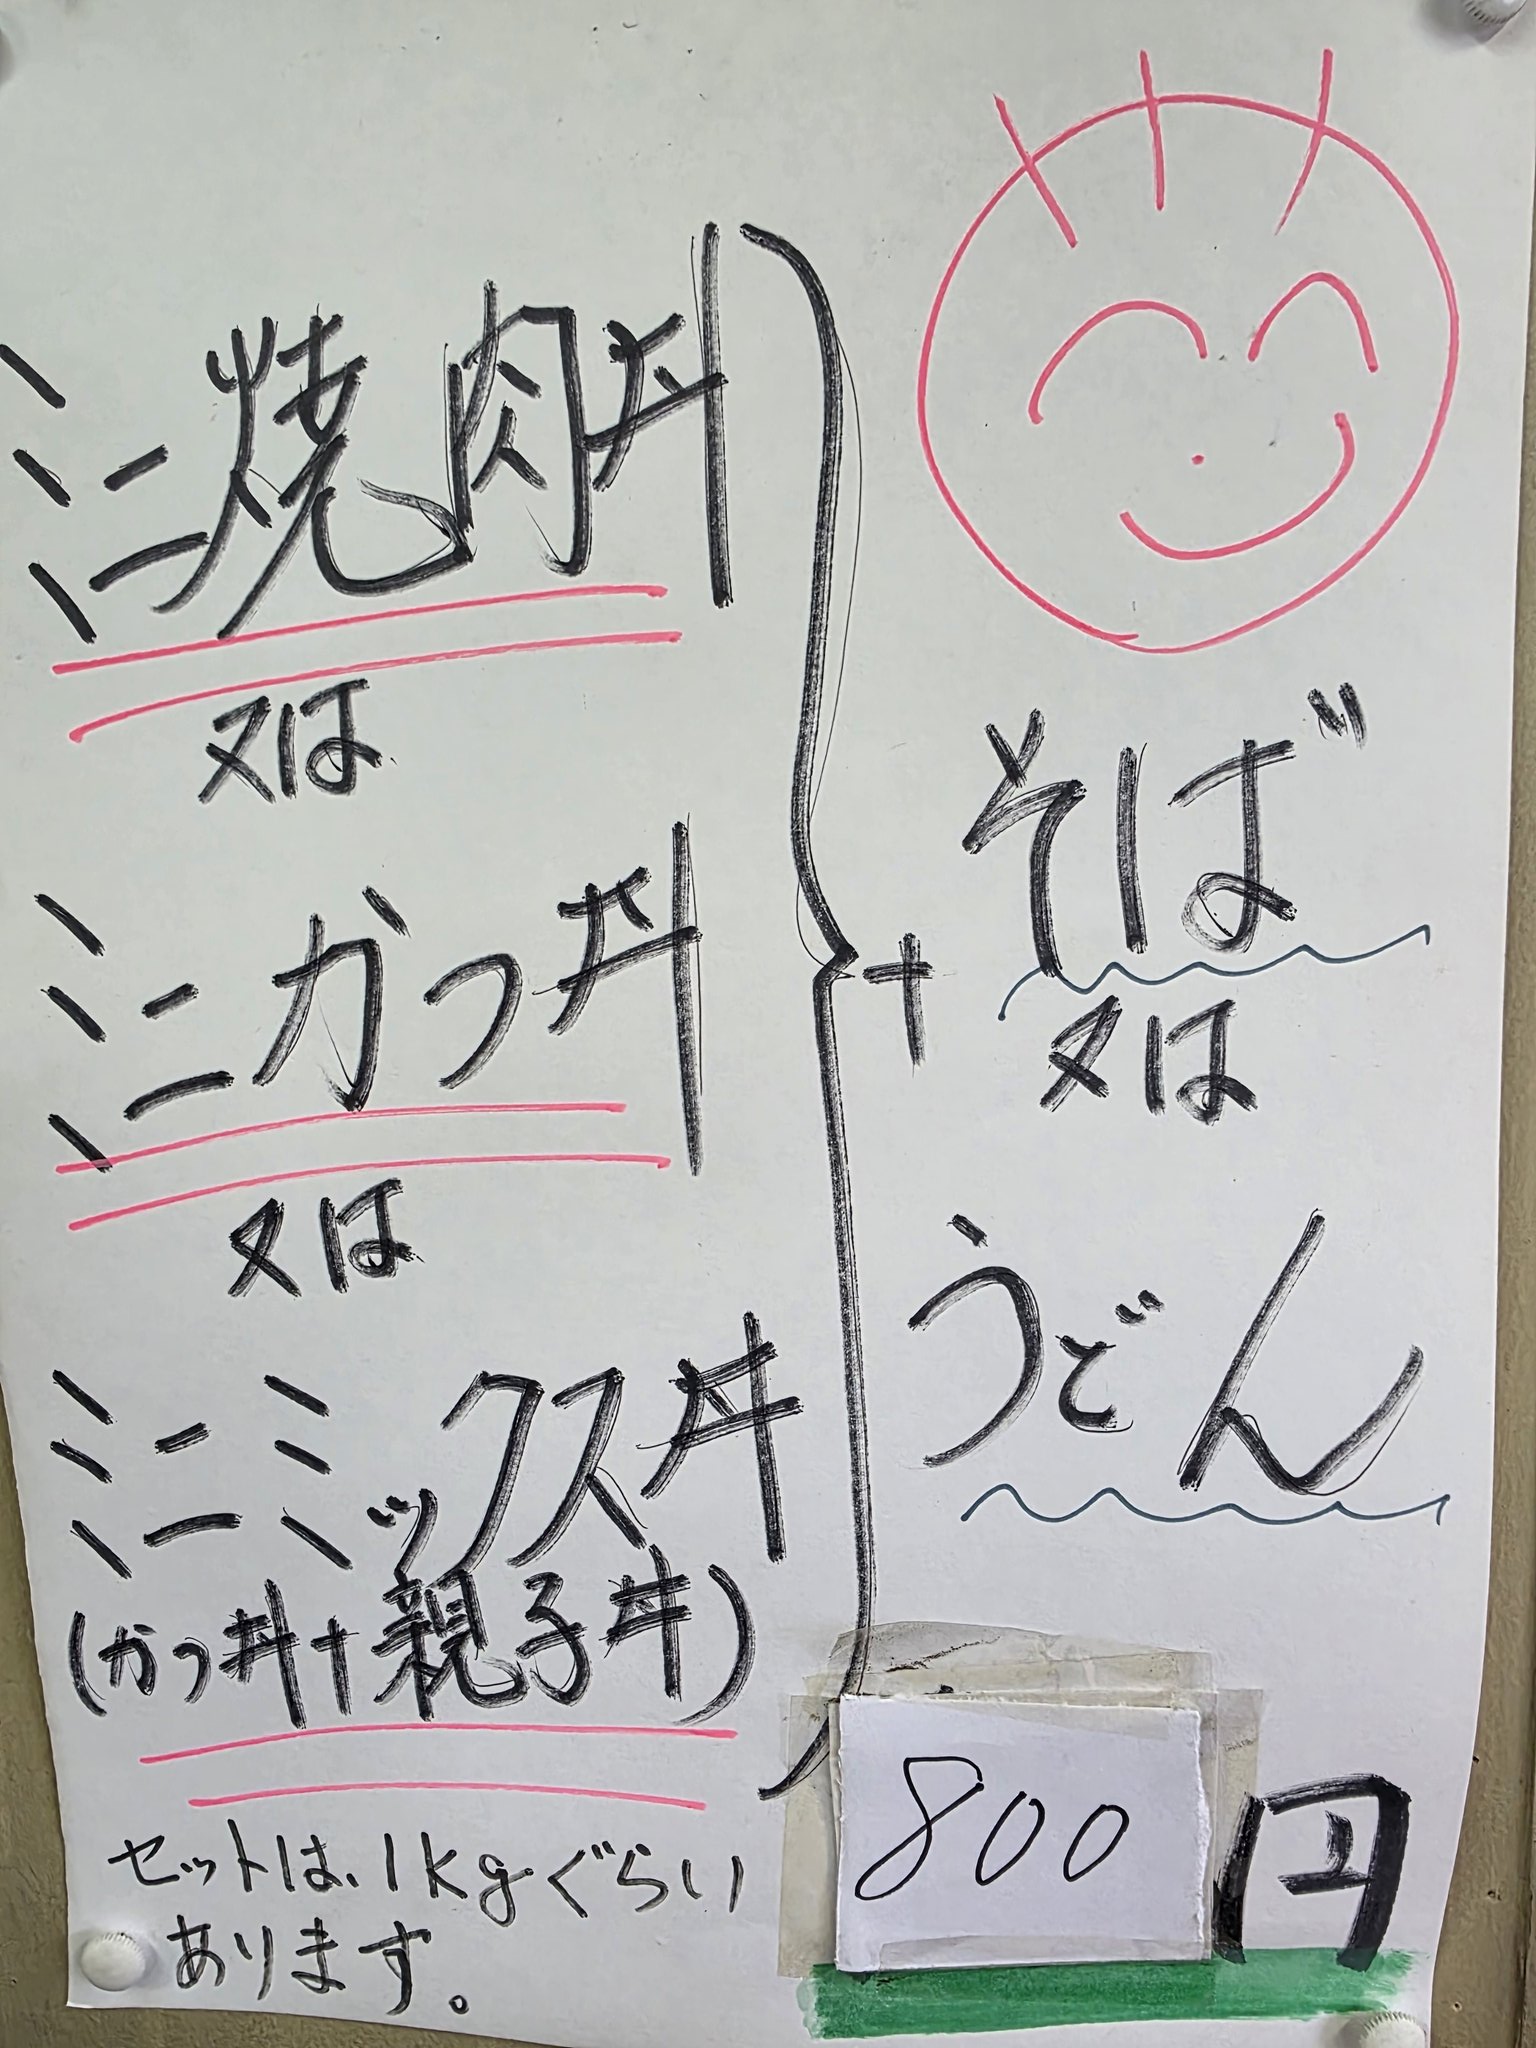 ミニ焼肉丼
又は
ミニかつ丼
又は
ミニミックス丼
(かつ丼+親子丼)
+
そば
又は
うどん
800円
セットは、1kgぐらい
あります。